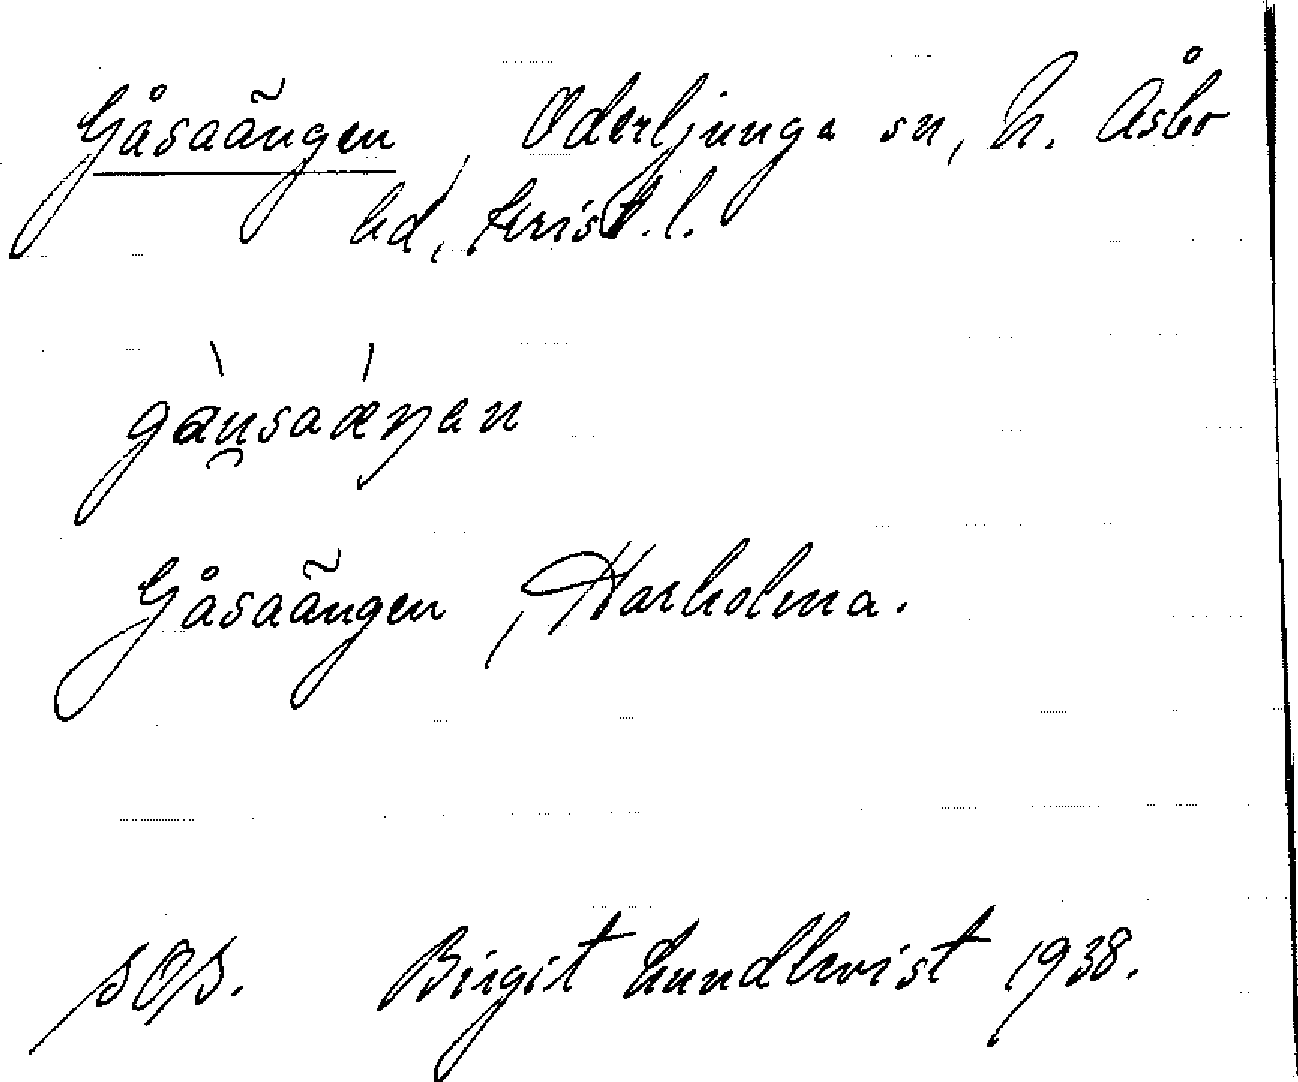 Gåsaängen, Oderljunga sn, N. Åsbo
hd, Krist. l.
gàu̯saáŋan
Gåsaängen, Harholma.
SOS. Birgit Lundkvist 1938.